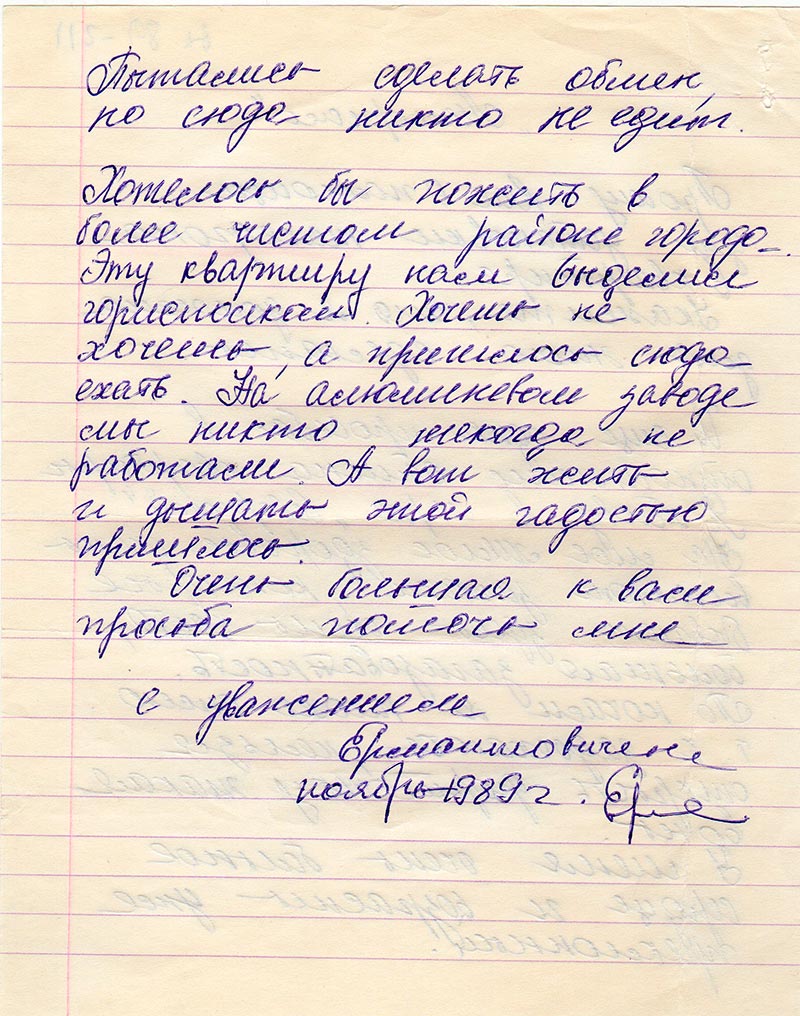 Пытались сделать обмен,
но сюда никто не едит.
Хотелось бы пожить в
более чистом районе города.
Эту квартиру нам выделили
горисполком. Хочешь не
хочешь, а пришлось сюда
ехать. На алюминевом заводе
мы никто никогда не
работали. А вот жить
и дышать этой гадостью
пришлось.
Очень большая к вам
просьба помочь мне
с уважением
ноябрь-1989 г.